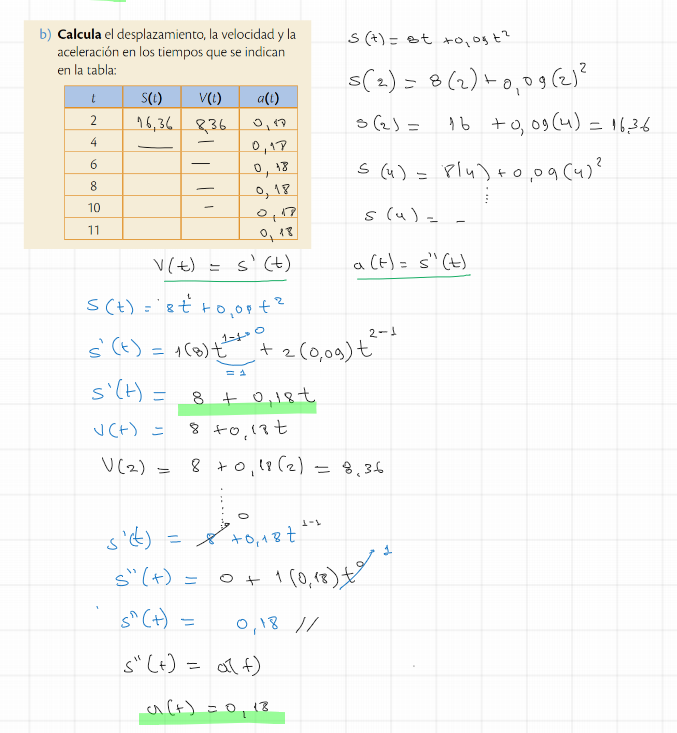 b) Calcula el desplazamiento, la velocidad y la
aceleración en los tiempos que se indican
en la tabla:
t S(t) V(t) a(t)
2 16,36 8,36 0,18
4 — — 0,18
6 — 0,18
8 — 0,18
10 - 0,18
11 0,18
S(t) = 8t + 0,09t²
S(2) = 8(2) + 0,09(2)²
S(2) = 16 + 0,09(4) = 16,36
S(4) = 8(4) + 0,09(4)²
S(4) = -
V(t) = s'(t)
a(t) = s''(t)
S(t) = 8t¹ + 0,09t²
s'(t) = 1(8)t¹⁻¹ ⁰ + 2(0,09)t²⁻¹
= 1
s'(t) = 8 + 0,18t
V(t) = 8 + 0,18t
V(2) = 8 + 0,18(2) = 8,36
0
s'(t) = 8 + 0,18t¹⁻¹
s''(t) = 0 + 1(0,18)t⁰ 1
s''(t) = 0,18 //
s''(t) = a(t)
a(t) = 0,18